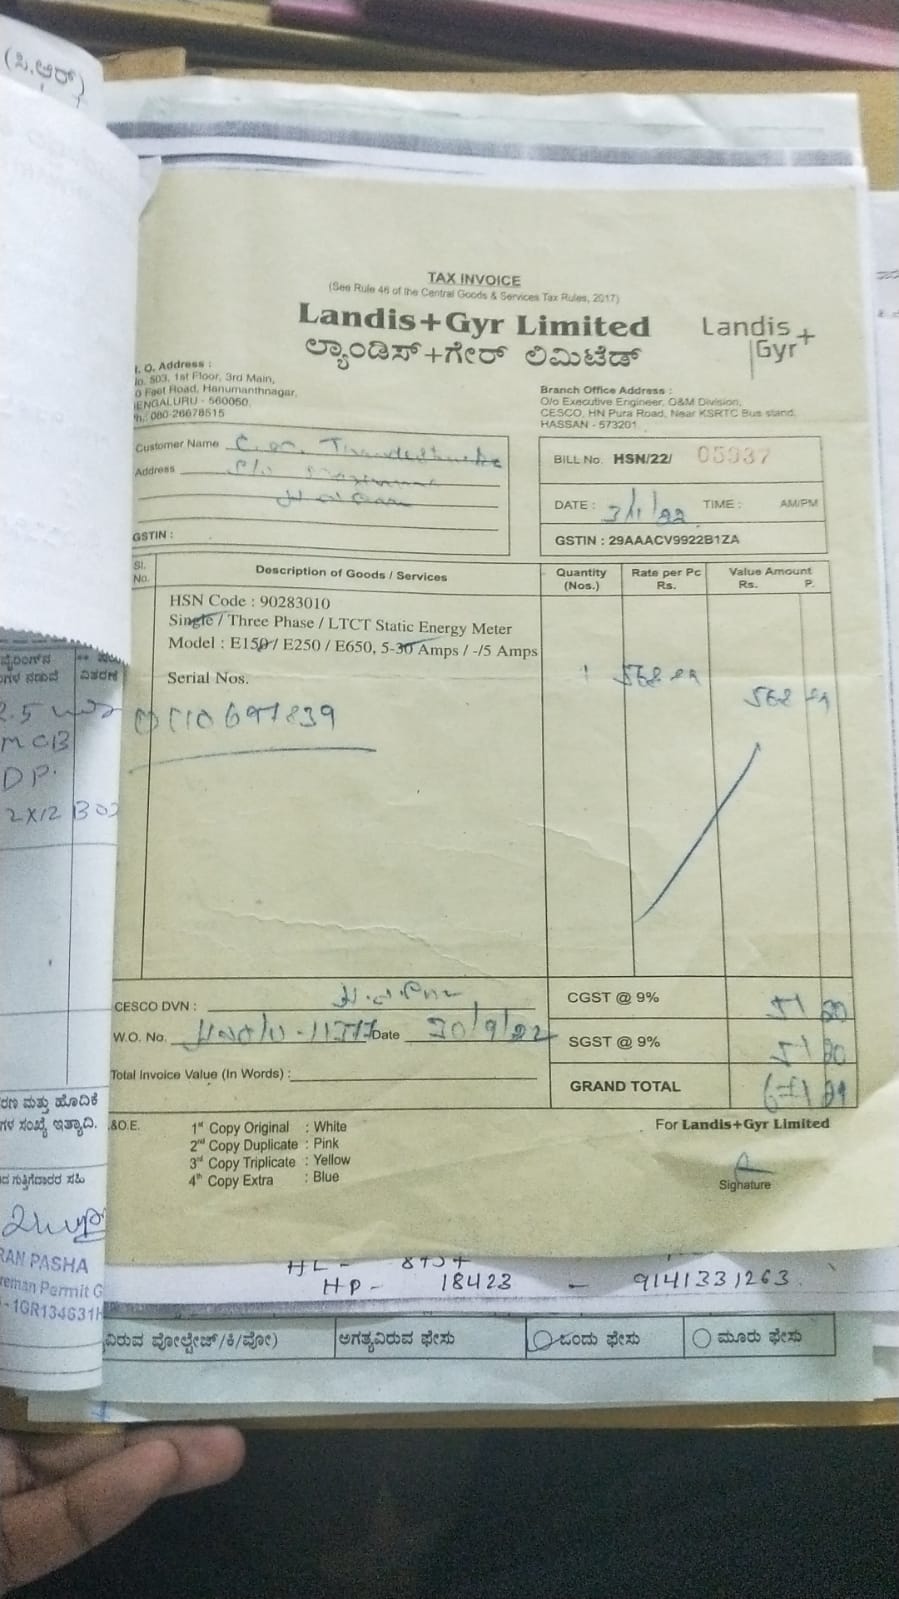 (ಸಿ.ಆರ್)
TAX INVOICE
(See Rule 46 of the Central Goods & Services Tax Rules, 2017)
Landis+Gyr Limited
ಲ್ಯಾಂಡಿಸ್+ಗೇರ್ ಲಿಮಿಟೆಡ್
Landis+
Gyr
. O. Address :
o. 503, 1st Floor, 3rd Main,
0 Feet Road, Hanumanthnagar,
ENGALURU - 560050.
h.: 080-26678515
Branch Office Address :
O/o Executive Engineer, O&M Division,
CESCO, HN Pura Road, Near KSRTC Bus stand,
HASSAN - 573201.
Customer Name
Address
GSTIN :
BILL No. HSN/22/ 05937
DATE : 3/1/22 TIME : AM/PM
GSTIN : 29AAACV9922B1ZA
Sl. No. Description of Goods / Services Quantity (Nos.) Rate per Pc Rs. Value Amount Rs. P.
HSN Code : 90283010
Single / Three Phase / LTCT Static Energy Meter
Model : E150 / E250 / E650, 5-30 Amps / -/5 Amps
Serial Nos. 1 568
568
ವೈರಿಂಗ್‌ನ
ಗಳ ನಡುವೆ ವಿತರಣೆ
MCB
DP.
2X12
CESCO DVN :
W.O. No. Date 30/9/22
Total Invoice Value (In Words) :
CGST @ 9% 51 20
SGST @ 9% 51 20
GRAND TOTAL
&O.E.
1st Copy Original : White
2nd Copy Duplicate : Pink
3rd Copy Triplicate : Yellow
4th Copy Extra : Blue
For Landis+Gyr Limited
Signature
ರಣ ಮತ್ತು ಹೊದಿಕೆ
ಗಳ ಸಂಖ್ಯೆ ಇತ್ಯಾದಿ.
ದ ಗುತ್ತಿಗೆದಾರರ ಸಹಿ
RAN PASHA
reman Permit G
HP - 18423 - 9141331263
ವಿರುವ ವೋಲ್ಟೇಜ್/ಕಿ/ವೋ) ಅಗತ್ಯವಿರುವ ಫೇಸು ಒಂದು ಫೇಸು ಮೂರು ಫೇಸು